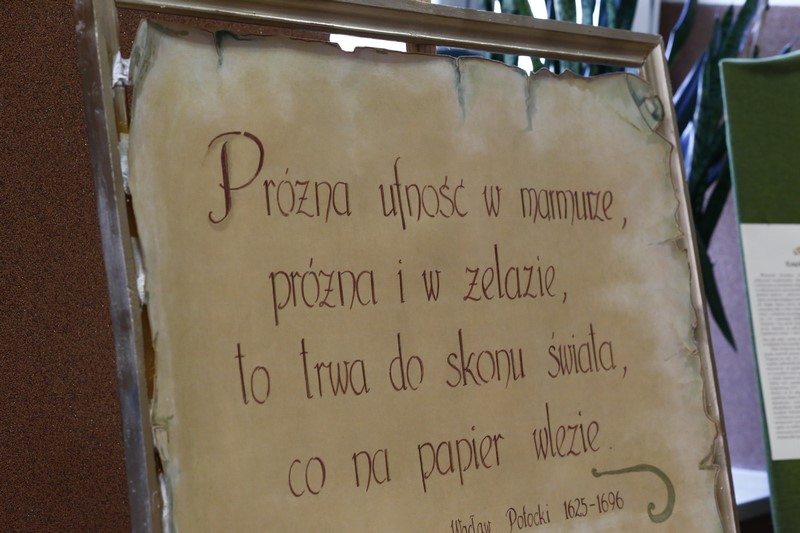 Próżna ufność w marmurze,
próżna i w żelazie,
to trwa do skonu świata,
co na papier wlezie.
Wacław Potocki 1625-1696